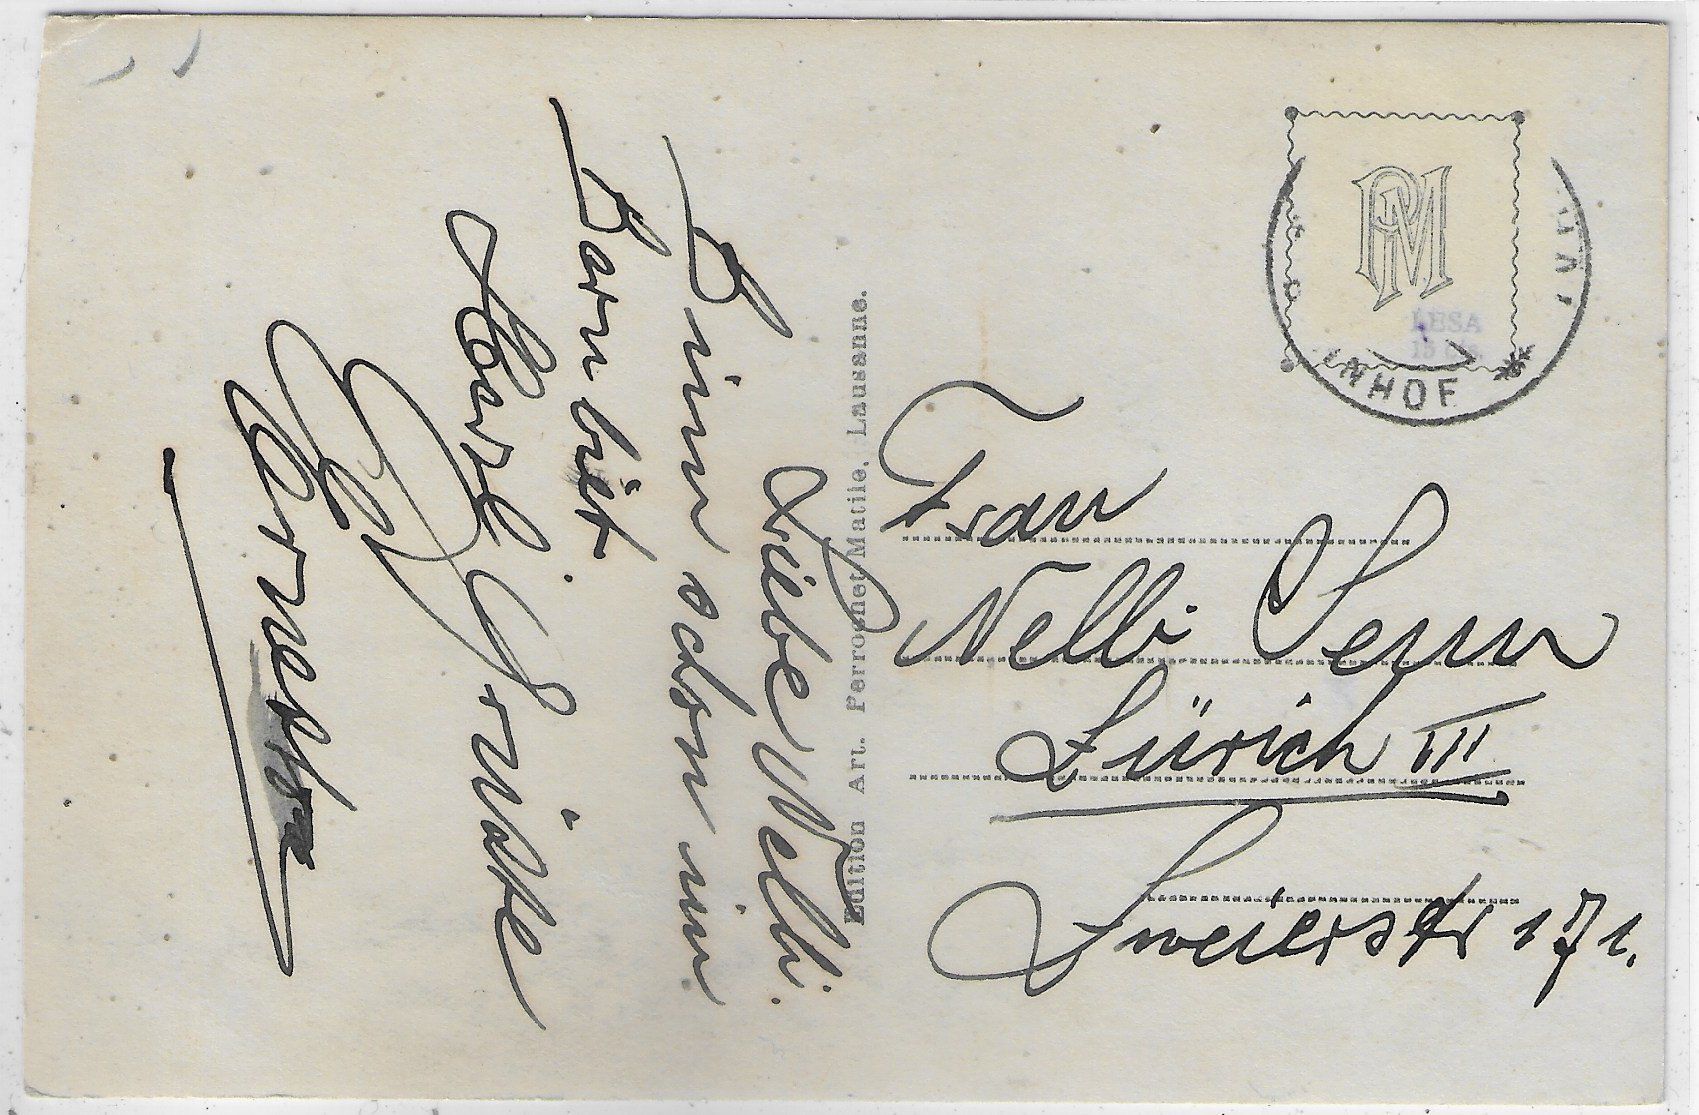 Liebe Nelli.
Binn schon im
Barnbit.
Herzl Grüste
Ernesto
Edition Art. Perrochet-Matile, Lausanne.
PM
LESA
NHOF
Frau
Nelli Senn
Zürich III
Zweierstr 171.